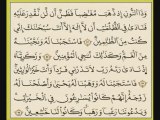 وَذَا النُّونِ إِذ ذَّهَبَ مُغَاضِبًا فَظَنَّ أَن لَّن نَّقْدِرَ عَلَيْهِ
فَنَادَىٰ فِي الظُّلُمَاتِ أَن لَّا إِلَٰهَ إِلَّا أَنتَ سُبْحَانَكَ إِنِّي
كُنتُ مِنَ الظَّالِمِينَ ۝ فَاسْتَجَبْنَا لَهُ وَنَجَّيْنَاهُ
مِنَ الْغَمِّ وَكَذَٰلِكَ نُنجِي الْمُؤْمِنِينَ ۝ وَزَكَرِيَّا
إِذْ نَادَىٰ رَبَّهُ رَبِّ لَا تَذَرْنِي فَرْدًا وَأَنتَ خَيْرُ الْوَارِثِينَ
۝ فَاسْتَجَبْنَا لَهُ وَوَهَبْنَا لَهُ يَحْيَىٰ وَأَصْلَحْنَا
لَهُ زَوْجَهُ إِنَّهُمْ كَانُوا يُسَارِعُونَ فِي الْخَيْرَاتِ
وَيَدْعُونَنَا رَغَبًا وَرَهَبًا وَكَانُوا لَنَا خَاشِعِينَ